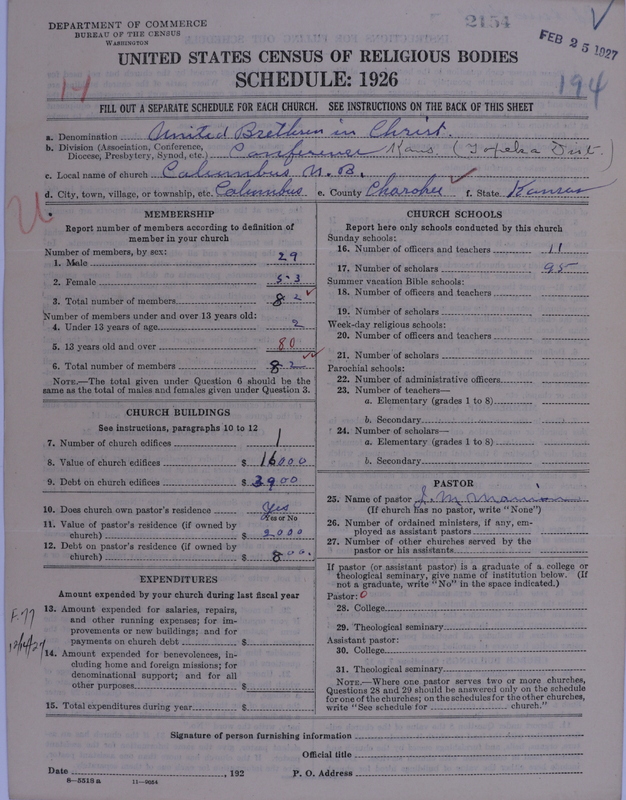 DEPARTMENT OF COMMERCE
BUREAU OF THE CENSUS
WASHINGTON
2154
FEB 25 1927
UNITED STATES CENSUS OF RELIGIOUS BODIES
SCHEDULE: 1926
194
FILL OUT A SEPARATE SCHEDULE FOR EACH CHURCH. SEE INSTRUCTIONS ON THE BACK OF THIS SHEET
a. Denomination United Brethren in Christ.
b. Division (Association, Conference, Diocese, Presbytery, Synod, etc.) Conference Kans. (Topeka Dist.)
c. Local name of church Columbus U.B.
d. City, town, village, or township, etc. Columbus e. County Charokee f. State Kansas
MEMBERSHIP
Report number of members according to definition of
member in your church
Number of members, by sex:
1. Male 29
2. Female 53
3. Total number of members 82
Number of members under and over 13 years old:
4. Under 13 years of age 2
5. 13 years old and over 80
6. Total number of members 82
NOTE.—The total given under Question 6 should be the
same as the total of males and females given under Question 3.
CHURCH BUILDINGS
See instructions, paragraphs 10 to 12
7. Number of church edifices 1
8. Value of church edifices $ 16000
9. Debt on church edifices $ 3900
10. Does church own pastor's residence Yes
Yes or No
11. Value of pastor's residence (if owned by
church) $ 2000
12. Debt on pastor's residence (if owned by
church) $ 800.
EXPENDITURES
Amount expended by your church during last fiscal year
13. Amount expended for salaries, repairs,
and other running expenses; for im-
provements or new buildings; and for
payments on church debt $
14. Amount expended for benevolences, in-
cluding home and foreign missions; for
denominational support; and for all
other purposes $
15. Total expenditures during year $
CHURCH SCHOOLS
Report here only schools conducted by this church
Sunday schools:
16. Number of officers and teachers 11
17. Number of scholars 95
Summer vacation Bible schools:
18. Number of officers and teachers
19. Number of scholars
Week-day religious schools:
20. Number of officers and teachers
21. Number of scholars
Parochial schools:
22. Number of administrative officers
23. Number of teachers—
a. Elementary (grades 1 to 8)
b. Secondary
24. Number of scholars—
a. Elementary (grades 1 to 8)
b. Secondary
PASTOR
25. Name of pastor J. M.
(If church has no pastor, write "None")
26. Number of ordained ministers, if any, em-
ployed as assistant pastors
27. Number of other churches served by the
pastor or his assistants
If pastor (or assistant pastor) is a graduate of a college or
theological seminary, give name of institution below. (If
not a graduate, write "No" in the space indicated.)
Pastor: 0
28. College
29. Theological seminary
Assistant pastor:
30. College
31. Theological seminary
NOTE.—Where one pastor serves two or more churches,
Questions 28 and 29 should be answered only on the schedule
for one of the churches; on the schedules for the other churches,
write "See schedule for church."
Signature of person furnishing information
Official title
Date , 192 P. O. Address
8—5518a 11—9054